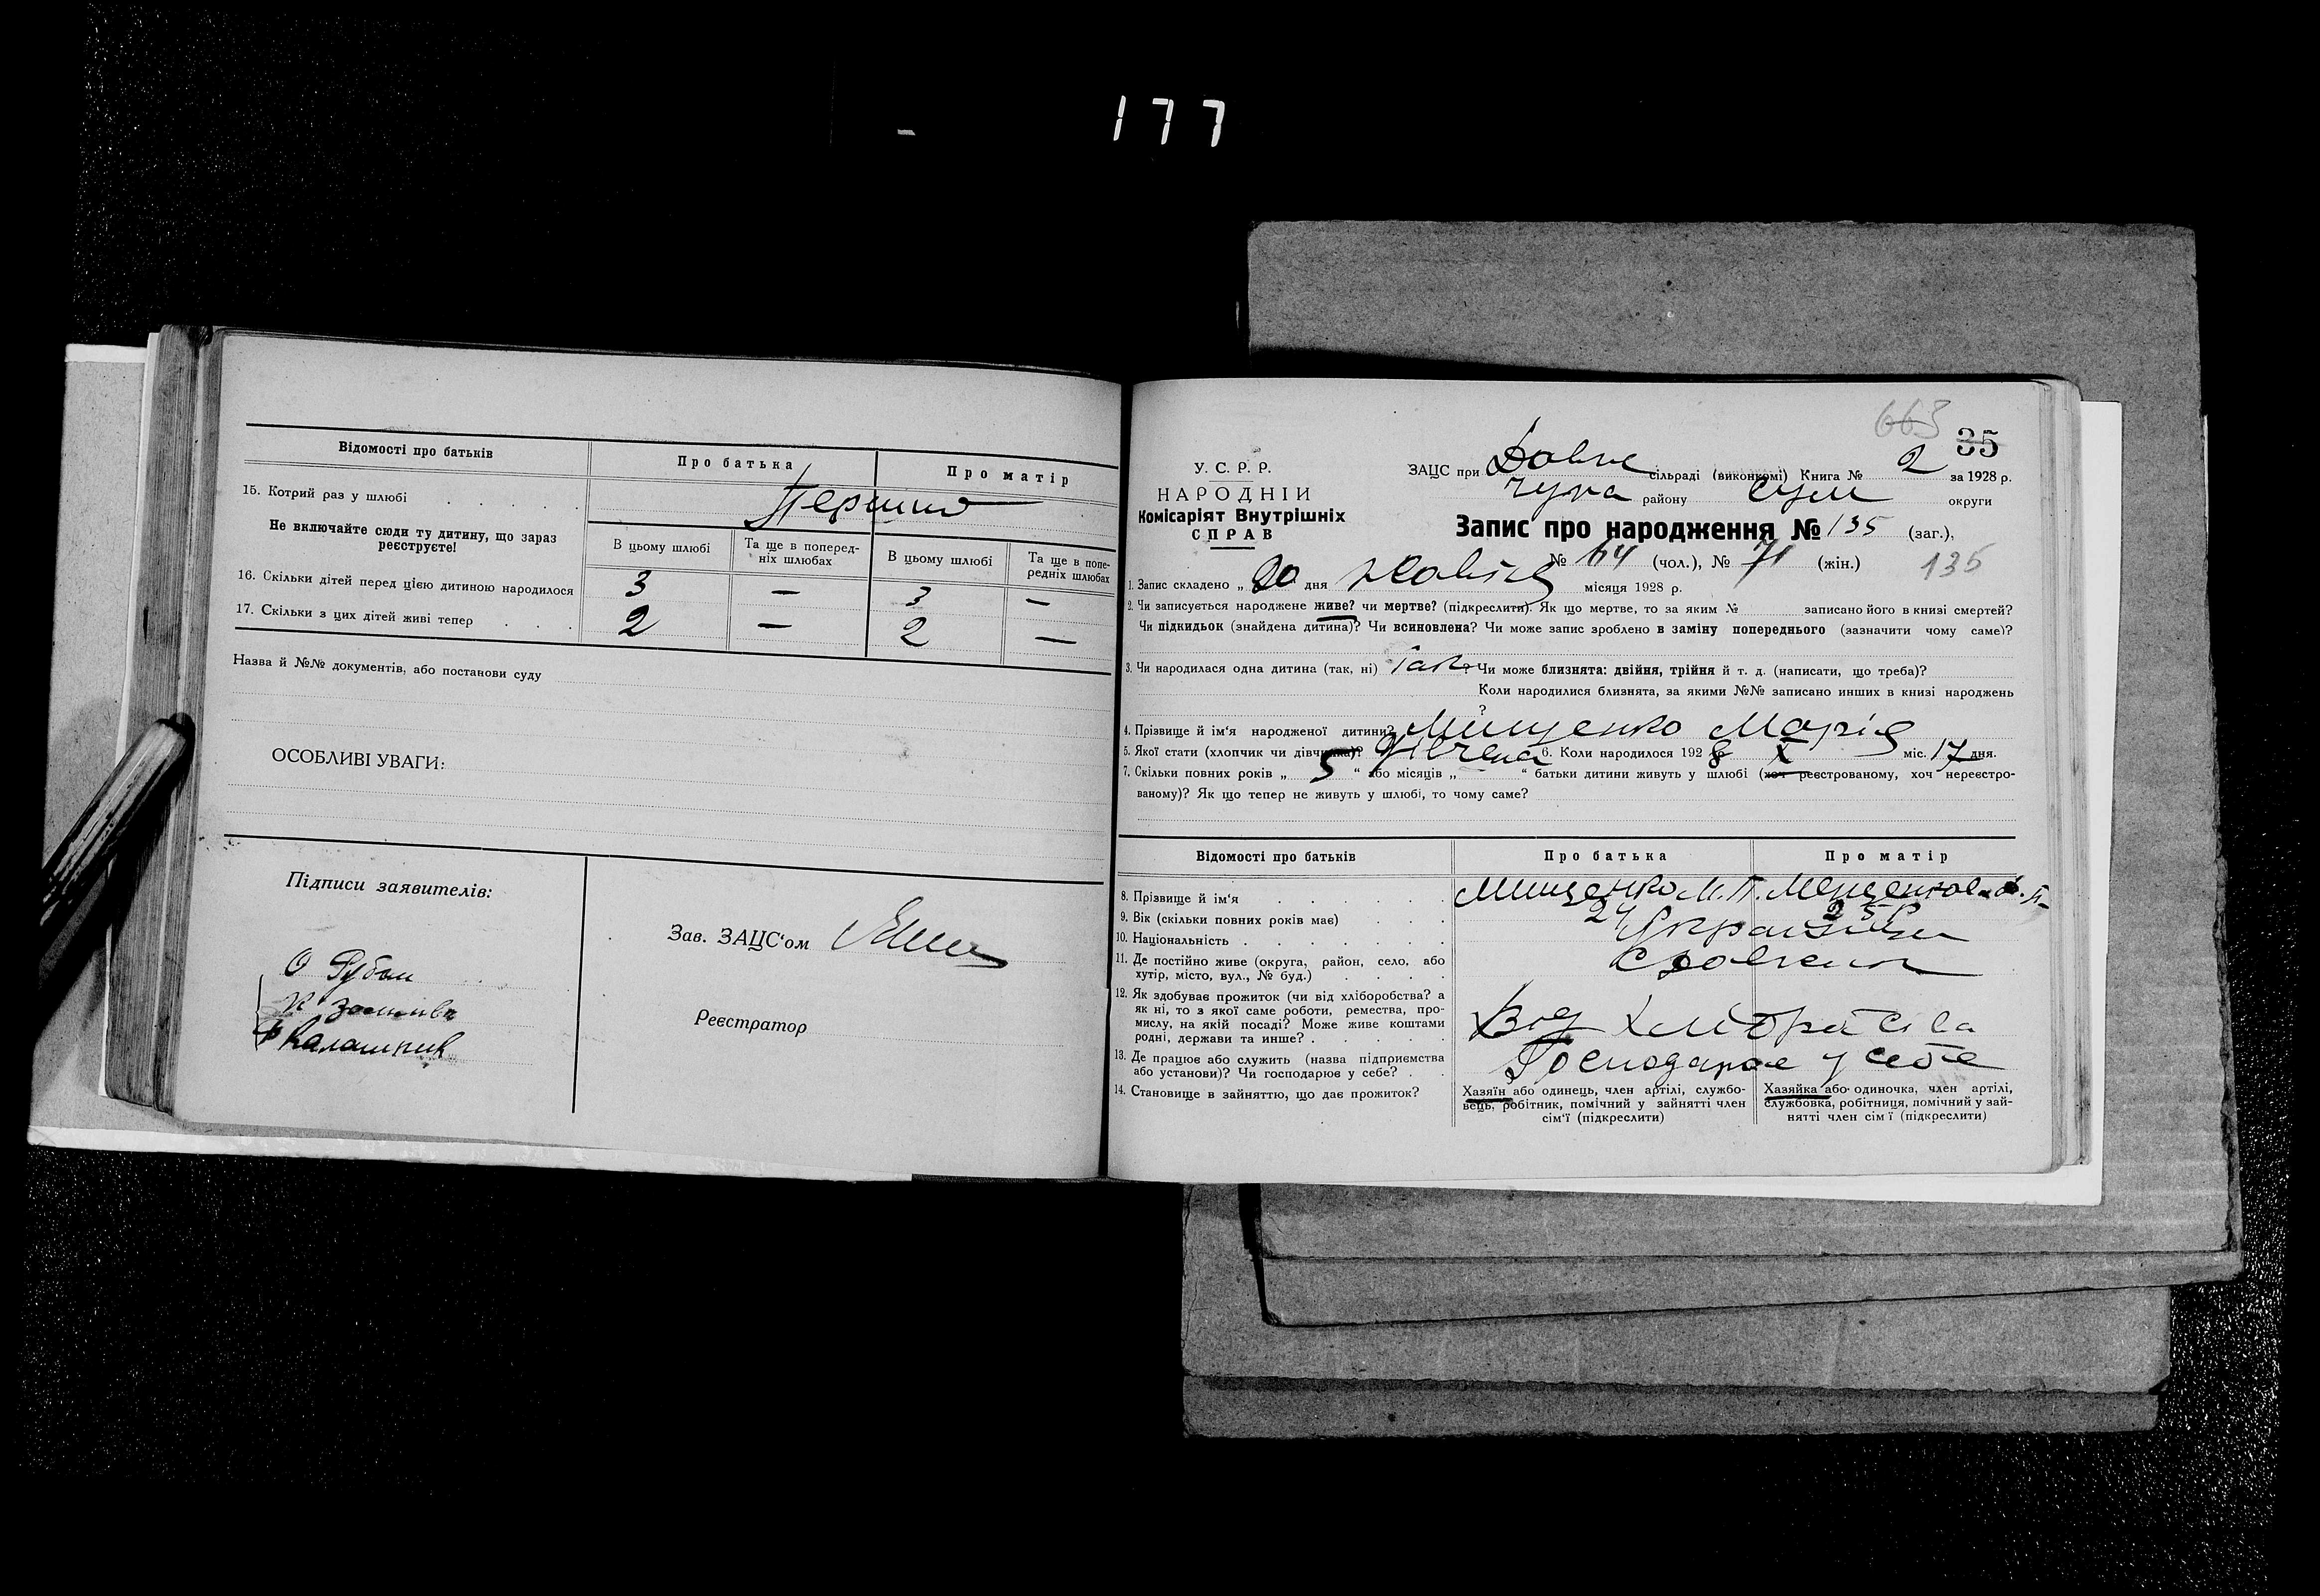 177
Відомості про батьків
Про батька
Про матір
15. Котрий раз у шлюбі
Не включайте сюди ту дитину, що зараз
реєструєте!
В цьому шлюбі
Та ще в поперед-
ніх шлюбах
В цьому шлюбі
Та ще в попе-
редніх шлюбах
16. Скільки дітей перед цією дитиною народилося 3 — 3 —
17. Скільки з цих дітей живі тепер 2 — 2 —
Назва й №№ документів, або постанови суду
ОСОБЛИВІ УВАГИ:
Підписи заявителів:
О Рубан
Калашник
Зав. ЗАЦС'ом
Реєстратор
663
35
У. С. Р. Р.
НАРОДНІЙ
Комісаріят Внутрішніх
СПРАВ
ЗАЦС при сільраді (виконкомі) Книга № 2 за 1928 р.
району Сум округи
Запис про народження № 135 (заг.),
№ 64 (чол.), № 71 (жін.)
135
1. Запис складено „ 20 дня місяця 1928 р.
2. Чи записується народжене живе? чи мертве? (підкреслити). Як що мертве, то за яким № записано його в книзі смертей?
Чи підкидьок (знайдена дитина)? Чи всиновлена? Чи може запис зроблено в заміну попереднього (зазначити чому саме)?
3. Чи народилася одна дитина (так, ні) Так? Чи може близнята: двійня, трійня й т. д. (написати, що треба)?
Коли народилися близнята, за якими №№ записано инших в книзі народжень
?
4. Прізвище й ім'я народженої дитини? Мищенко Марія
5. Якої стати (хлопчик чи дівчинка)? Дівчена 6. Коли народилося 1928 р X міс. 17 дня.
7. Скільки повних років „ 5 “ або місяців „ — “ батьки дитини живуть у шлюбі (хоч реєстрованому, хоч нереєстро-
ваному)? Як що тепер не живуть у шлюбі, то чому саме?
Відомості про батьків
Про батька
Про матір
8. Прізвище й ім'я Мищенко М. П.
9. Вік (скільки повних років має) 24 25
10. Національність
11. Де постійно живе (округа, район, село, або
хутір, місто, вул., № буд.)
12. Як здобуває прожиток (чи від хліборобства? а
як ні, то з якої саме роботи, ремества, про-
мислу, на якій посаді? Може живе коштами
родні, держави та инше? Від
13. Де працює або служить (назва підприємства
або установи)? Чи господарює у себе? Господарює у себе
14. Становище в зайняттю, що дає прожиток?
Хазяїн або одинець, член артілі, службо-
вець, робітник, помічний у зайнятті член
сім'ї (підкреслити)
Хазяйка або одиночка, член артілі,
службовка, робітниця, помічний у зай-
нятті член сім ї (підкреслити)